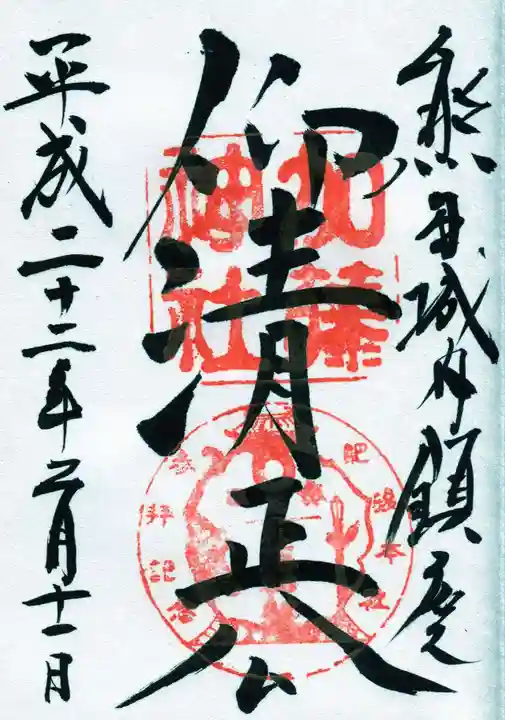 熊本城内鎮座
仰清正公
平成二十二年二月十一日
加藤神社
参拝記念